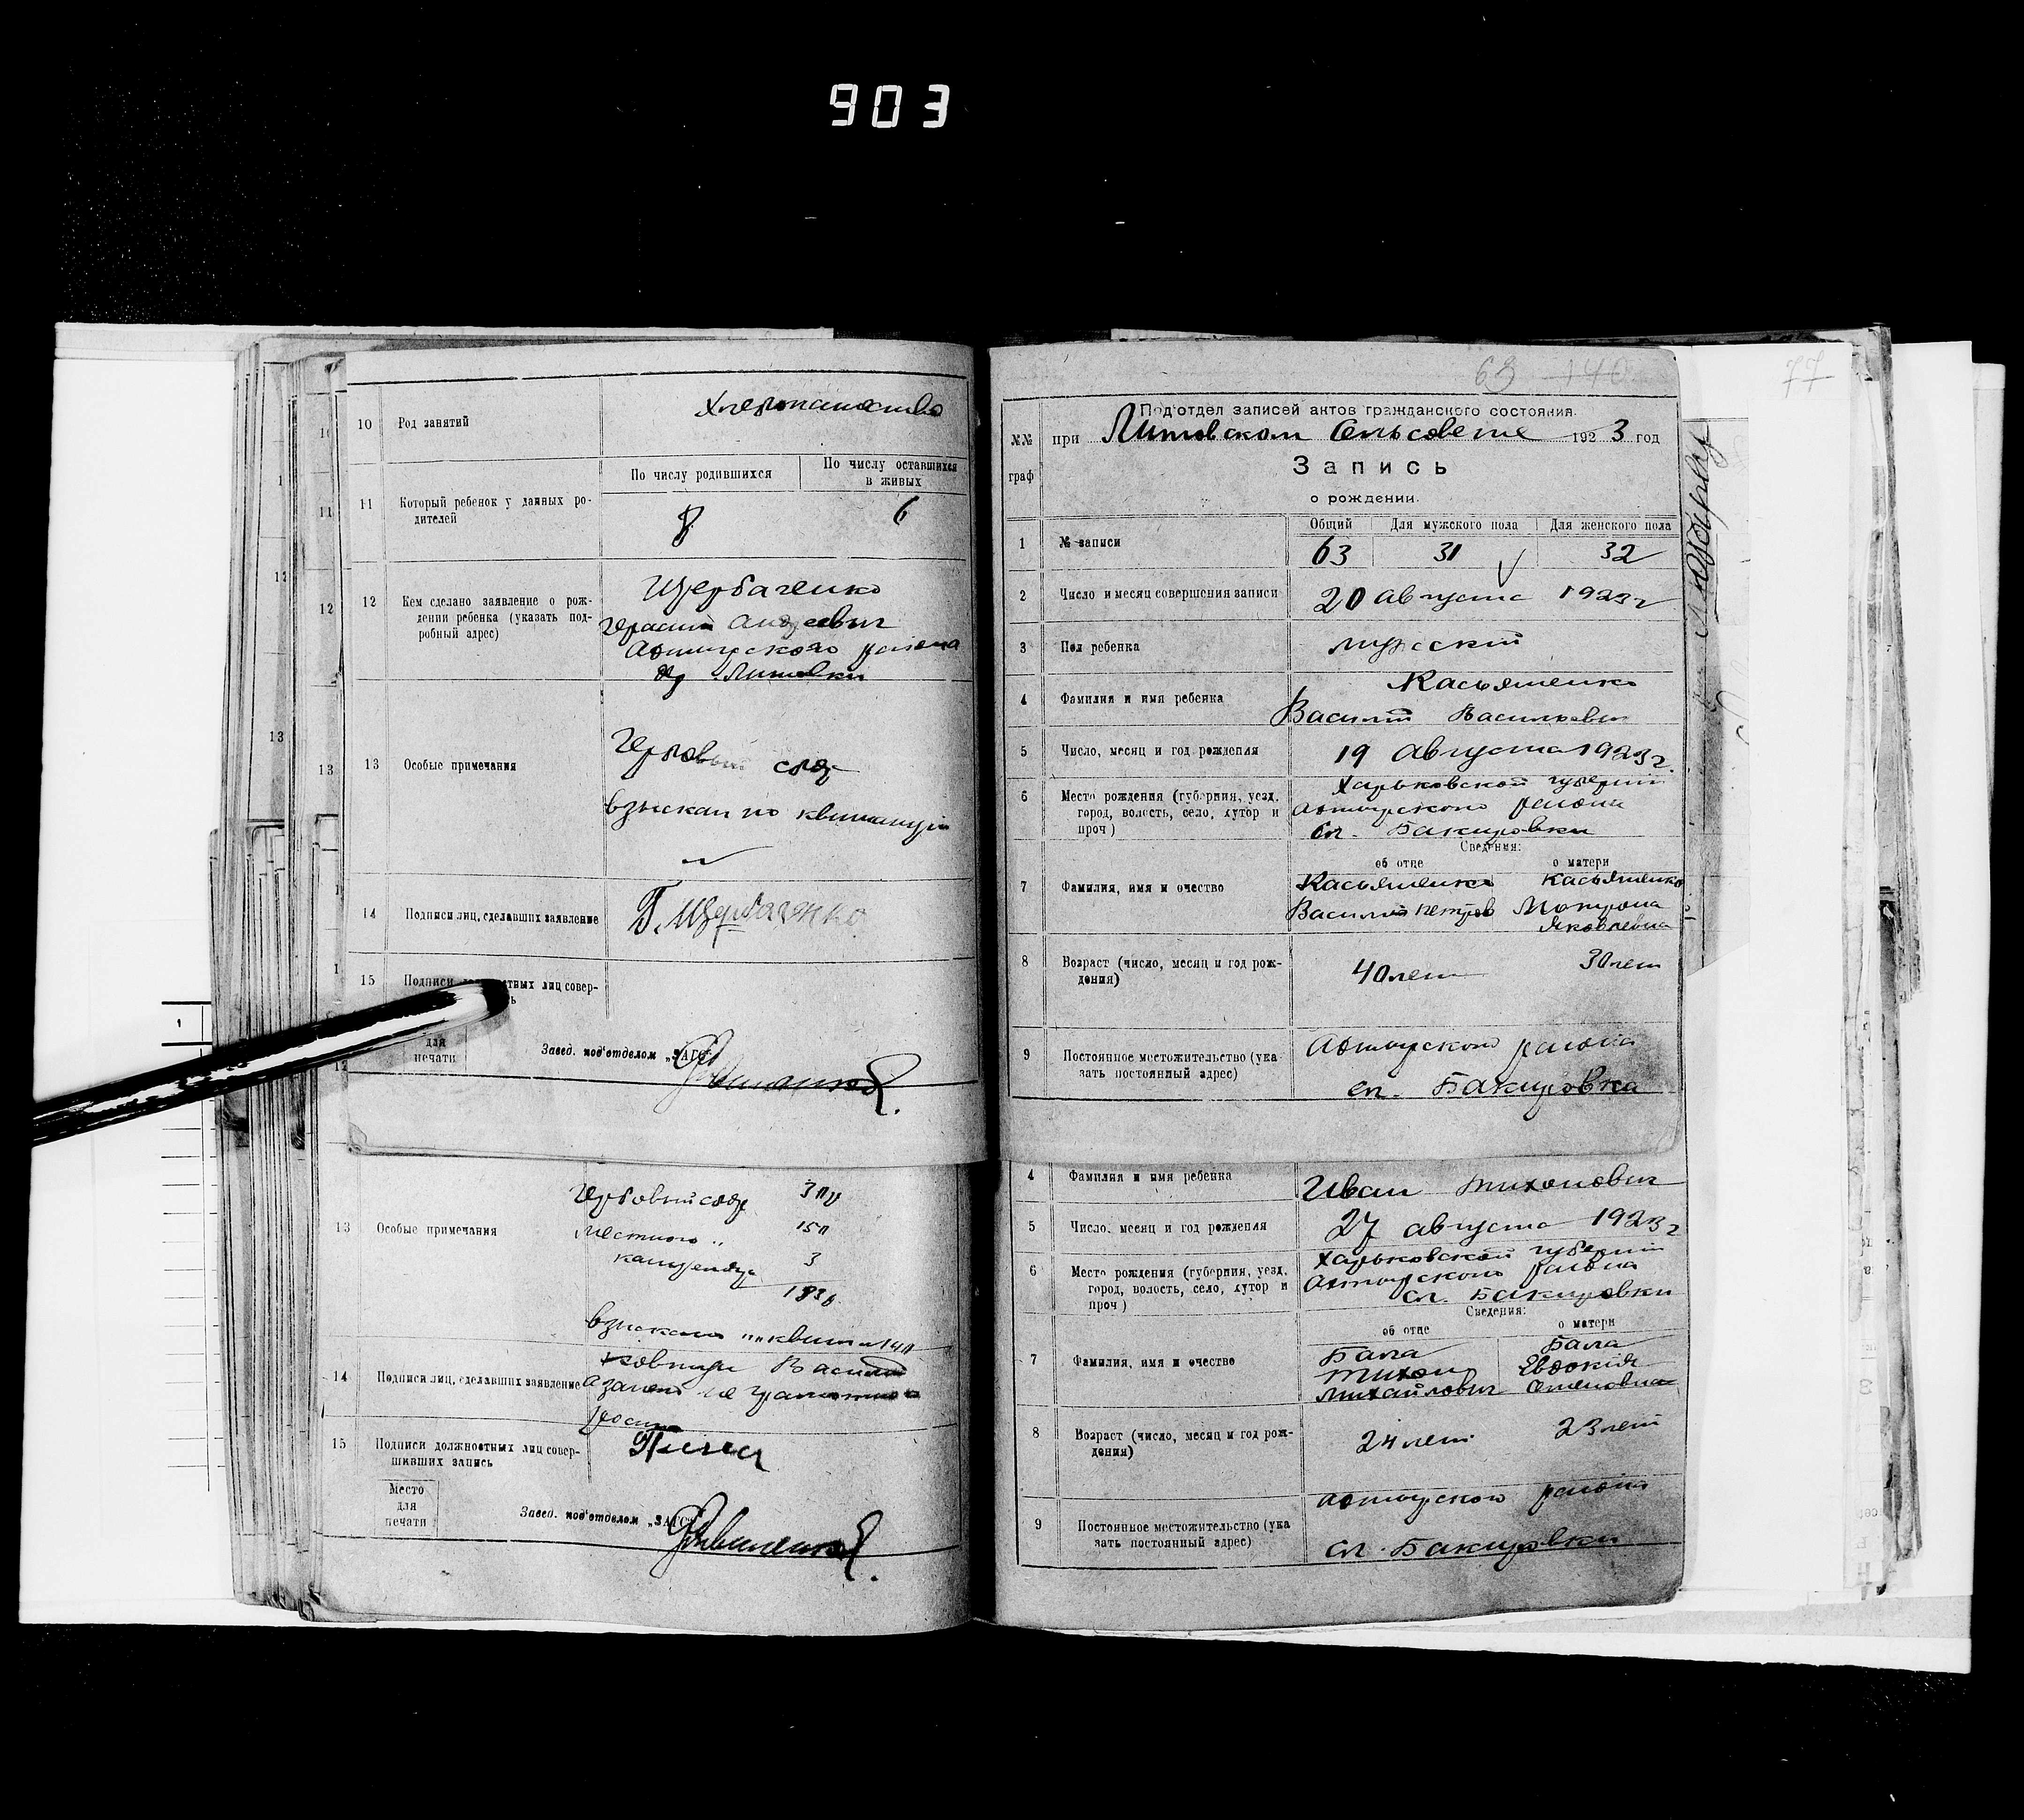 903
10 Род занятий
Хлебопашество
11 Который ребенок у данных ро-
дителей
По числу родившихся
По числу оставшихся
в живых
8
6
12 Кем сделано заявление о рож-
дении ребенка (указать под-
робный адрес)
Щербаченко
Герасим Андреевич
Ахтырского района
Литовки
13 Особые примечания
Гербовый сбор
взыскан по квитанции
14 Подписи лиц, сделавших заявление
Г. Щербаченко
15 Подписи
лиц совер-
для
печати
Завед. под'отделом „ЗАГС"
13 Особые примечания
Гербовый сбор 3
местного „ 15
3
взыскано
14 Подписи лиц, сделавших заявление
Василий
а за него не грамотного
15 Подписи должностных лиц совер-
шивших запись
Место
для
печати
Завед. под'отделом „ЗАГС"
63 140
77
№№
граф
Под'отдел записей актов гражданского состояния.
при Литовском Сельсовете 1923 год
Запись
о рождении.
Общий Для мужского пола Для женского пола
1 № записи
63 31 32
2 Число и месяц совершения записи
20 августа 1923 г
3 Пол ребенка
мужской
4 Фамилия и имя ребенка
Касьяненко
Василий Васильевич
5 Число, месяц и год рождения
19 августа 1923 г.
6 Место рождения (губерния, уезд,
город, волость, село, хутор и
проч)
Харьковской губернии
Ахтырского района
сл. Бакировки
Сведения:
об отце о матери
7 Фамилия, имя и очество
Касьяненко Касьяненко
Василий Петров Мотрона
Яковлевна
8 Возраст (число, месяц и год рож-
дения)
40 лет 30 лет
9 Постоянное местожительство (ука
зать постоянный адрес)
Ахтырского района
сл. Бакировка
4 Фамилия и имя ребенка
Иван Тихонович
5 Число, месяц и год рождения
27 августа 1923 г
6 Место рождения (губерния, уезд,
город, волость, село, хутор и
проч)
Харьковской губернии
Ахтырского района
сл. Бакировки
Сведения:
об отце о матери
7 Фамилия, имя и очество
Бала Бала
Тихон Евдокия
Михайлович Семеновна
8 Возраст (число, месяц и год рож-
дения)
24 лет 23 лет
9 Постоянное местожительство (ука
зать постоянный адрес)
Ахтырского района
сл. Бакировки